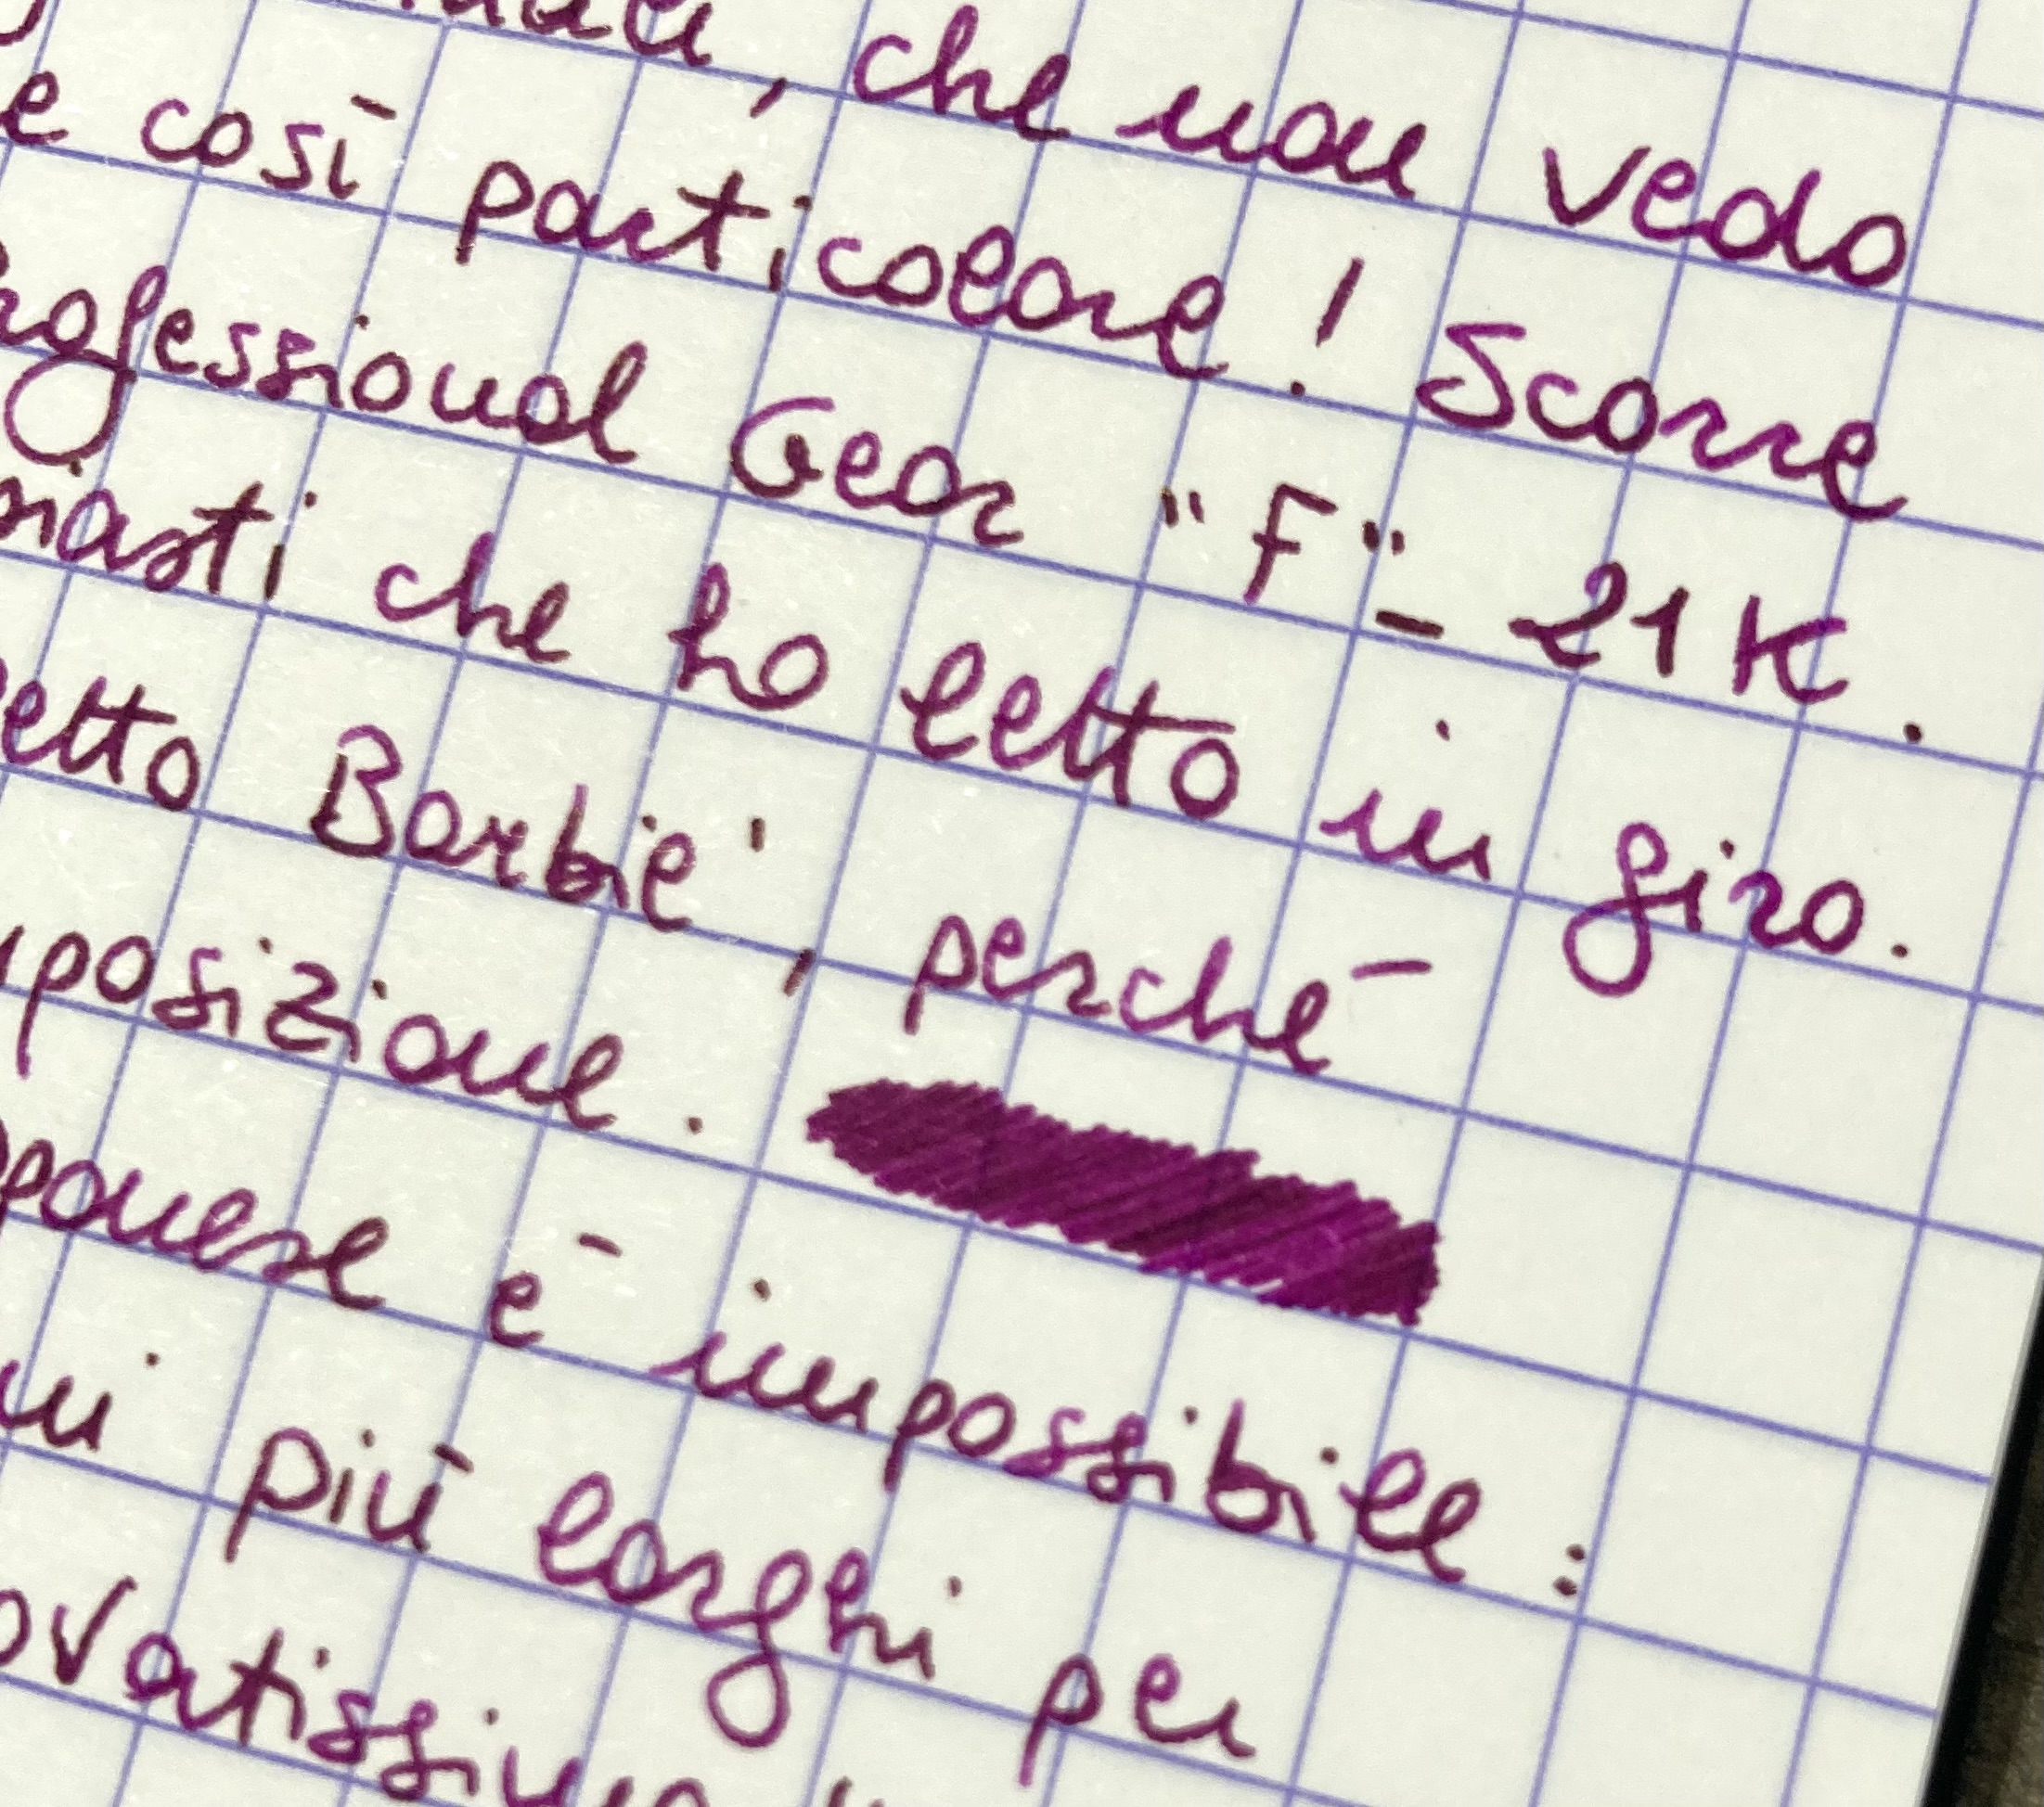 , che non vedo
e così particolare! Scorre
rofessional Gear "F" - 21K.
iasti che ho letto in giro.
etto Barbie', perché
posizione.
ponese è impossibile:
più larghi per
ovatissimo